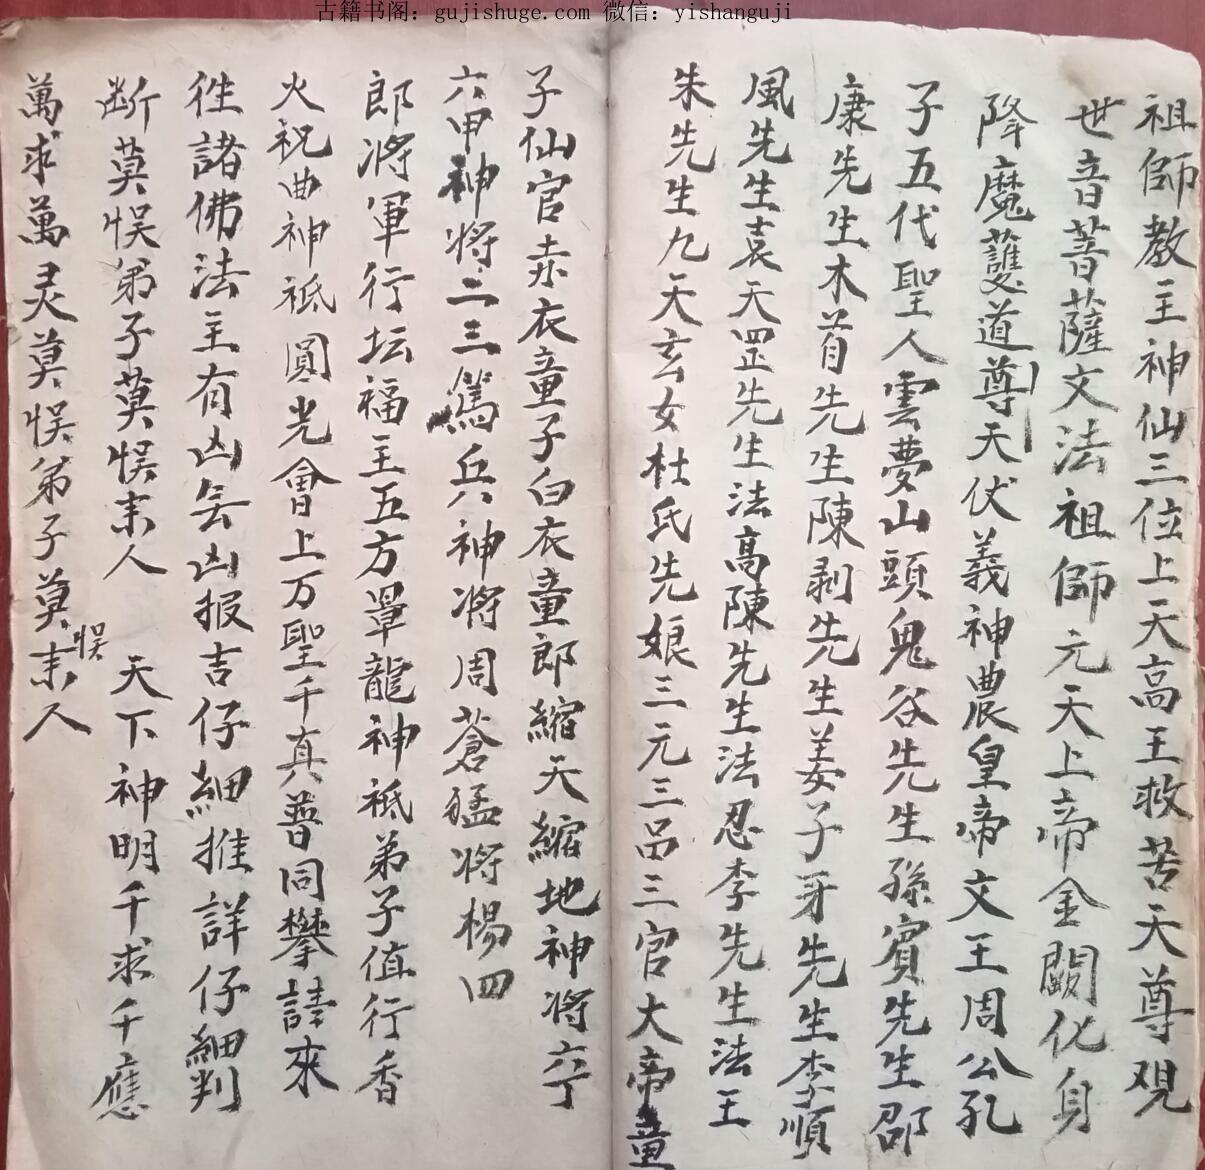 古籍书阁：gujishuge.com 微信：yishanguji
祖師教主神仙三位上天高王救苦天尊观
世音菩薩文法祖師元天上帝金闕化身
降魔護道尊天伏義神農皇帝文王周公孔
子五代聖人雲夢山頭鬼谷先生孫賓先生邵
康先生木首先生陳剥先生姜子牙先生李順
風先生袁天罡先生法高陳先生法忍李先生法王
朱先生九天玄女杜氏先娘三元三品三官大帝童
子仙官赤衣童子白衣童郎縮天縮地神将六丁
六甲神将二三篤兵神将周蒼猛将楊四
郎将軍行坛福主五方罩龍神祗弟子值行香
火祝曲神祗圓光會上万聖千真普同攀請來
徃諸佛法主有凶告凶报吉仔細推詳仔細判
断莫悮弟子莫悮来人 天下神明千求千應
萬求萬灵莫悮弟子莫悮来人